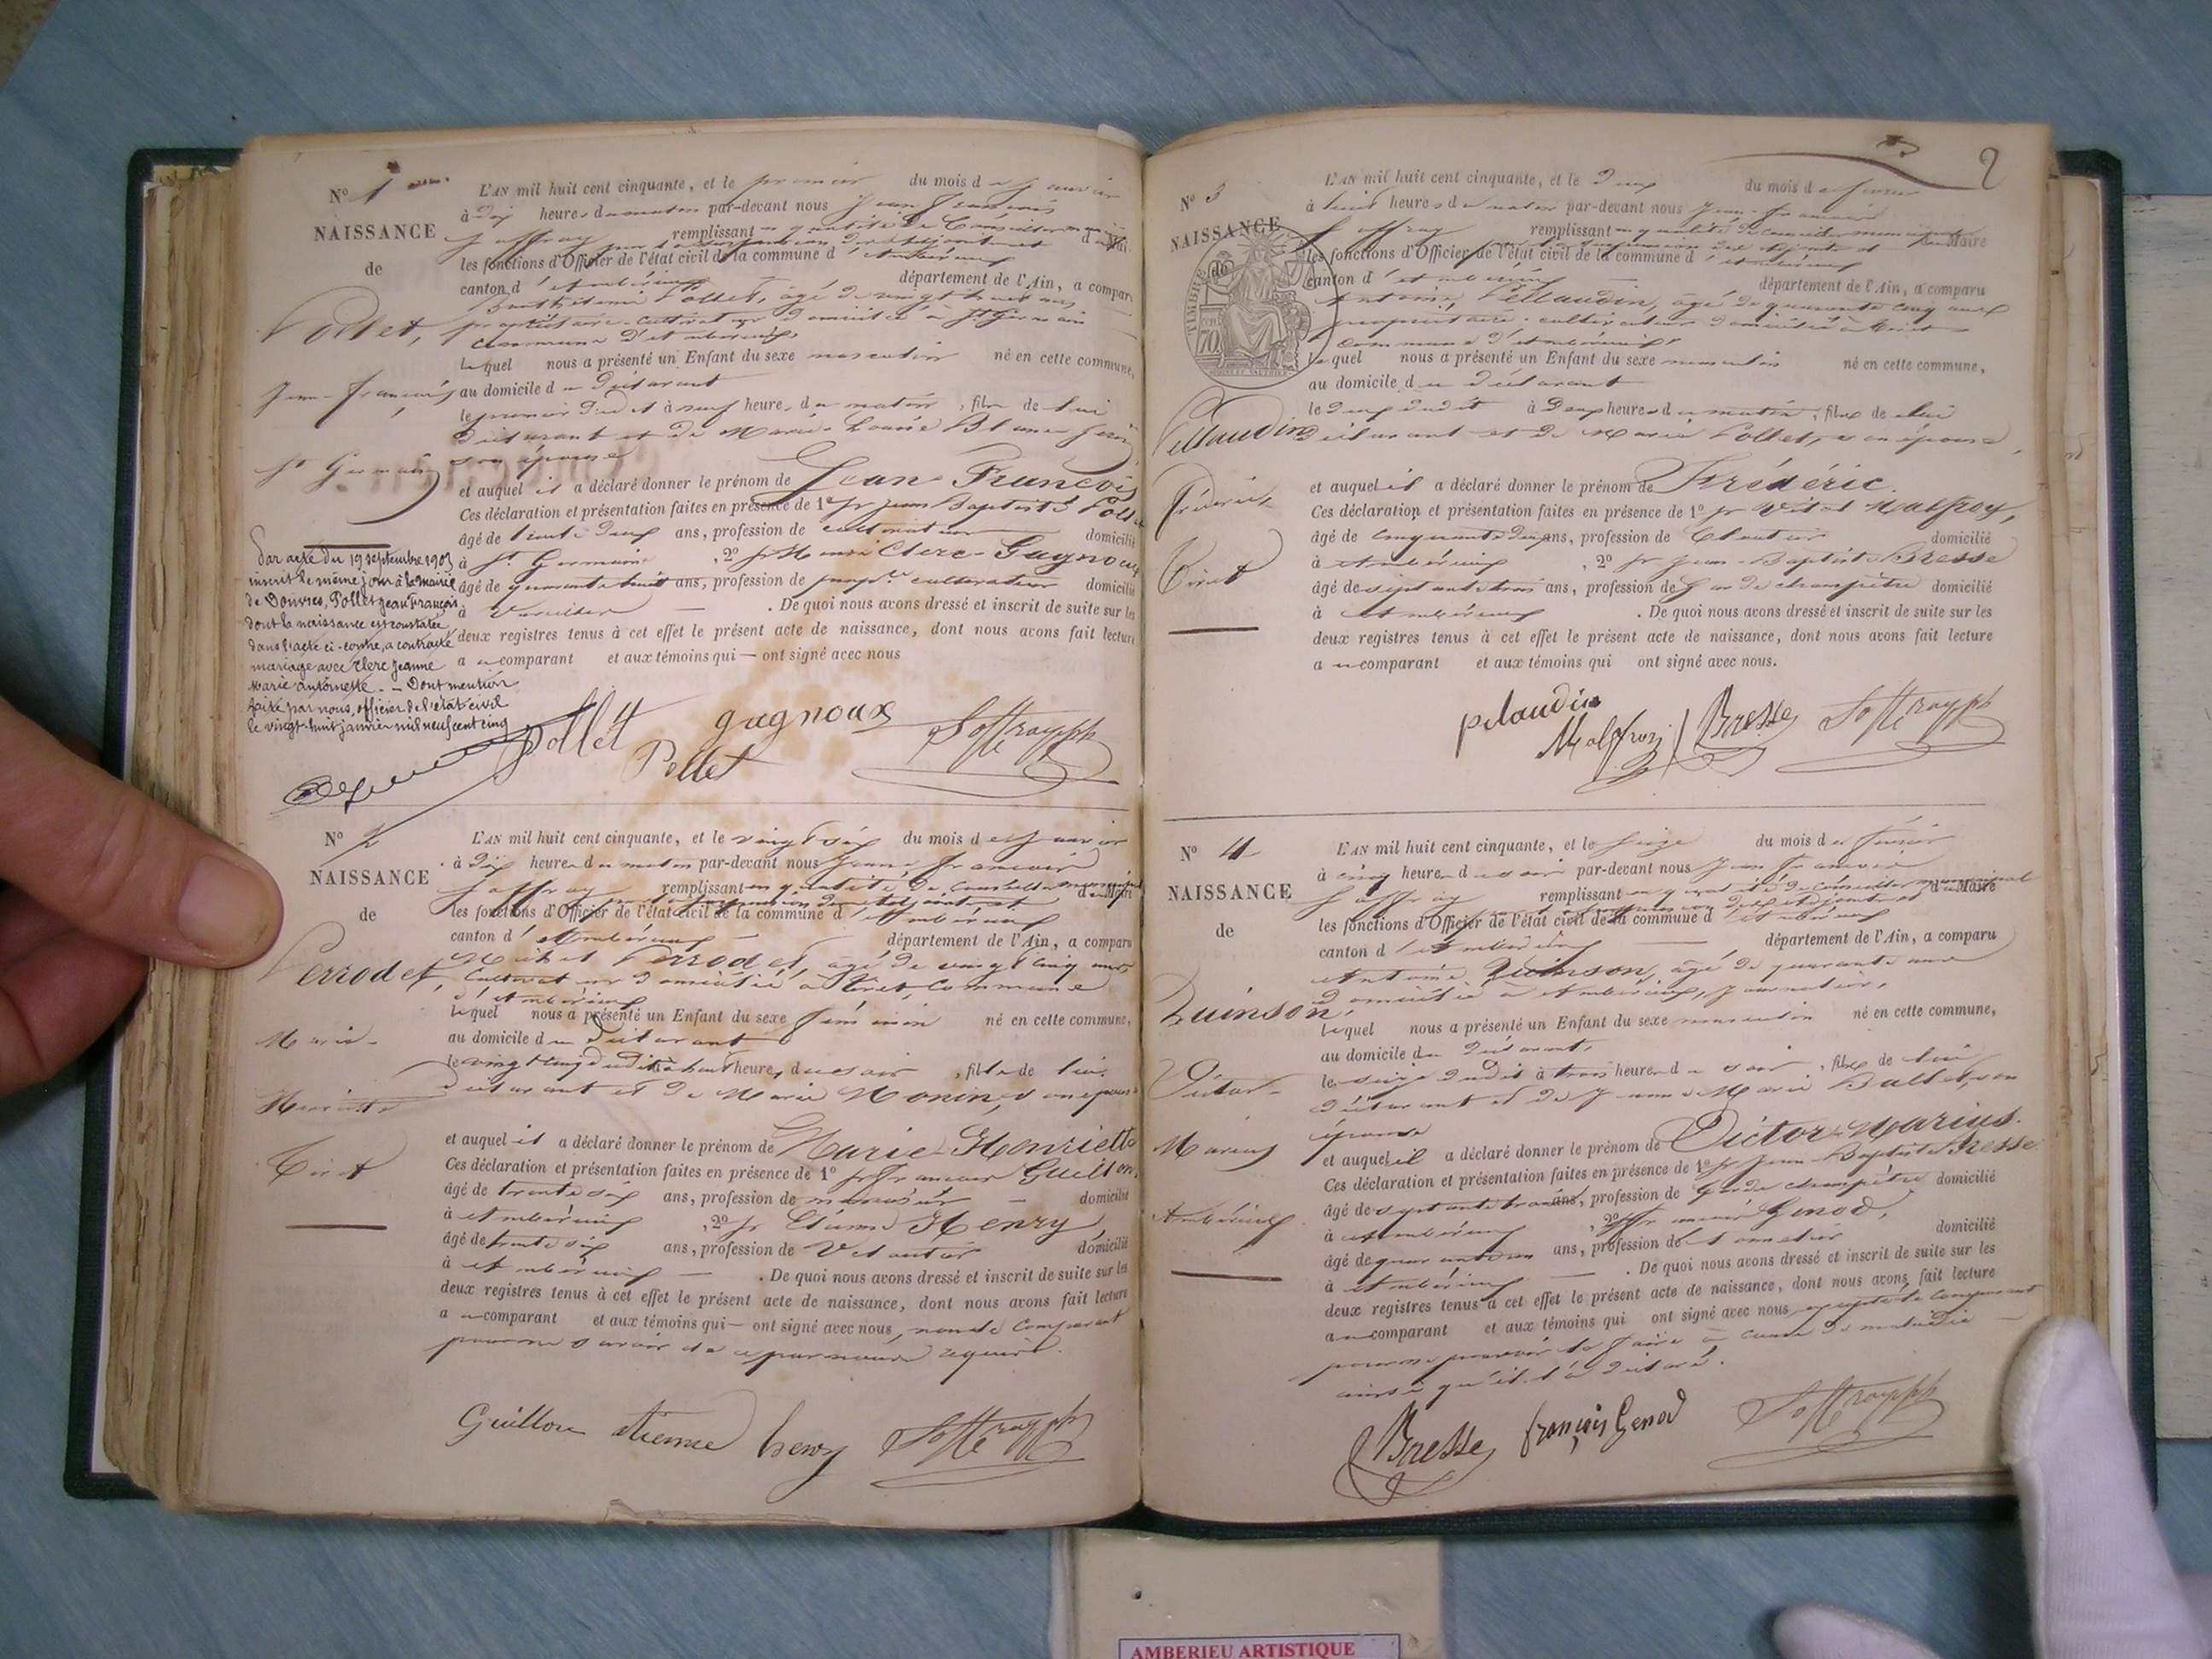 N° 1
NAISSANCE
de
Pollet,
Jean-François
St Germain
Par acte du 19 septembre 1903
inscrit le même jour à la mairie
de Douvres, Pollet Jean François
dont la naissance est constatée
dans l'acte ci-contre, a contracté
mariage avec Clerc Jeanne
Marie Antoinette. — Dont mention
faite par nous, officier de l'état civil
le vingt-huit janvier mil neuf cent cinq
L'AN mil huit cent cinquante, et le premier du mois de janvier
à dix heures du matin par-devant nous Jean François
Joffray remplissant en qualité de Conseiller
les fonctions d'Officier de l'état civil de la commune d'Ambérieux
canton d'Ambérieux département de l'Ain, a comparu
Pollet, âgé de vingt huit ans
propriétaire-cultivateur domicilié à St Germain
commune d'Ambérieux
Lequel nous a présenté un Enfant du sexe masculin né en cette commune,
au domicile du déclarant
le premier dudit à neuf heures du matin, fils de lui
déclarant et de Marie-Louise
son épouse
et auquel il a déclaré donner le prénom de Jean-François
Ces déclaration et présentation faites en présence de 1° Sr Jean Baptiste Pollet
âgé de ans, profession de cultivateur domicilié
à St Germain, 2° Sr Clerc-Gagnoux
âgé de quarante huit ans, profession de propre cultivateur domicilié
à . De quoi nous avons dressé et inscrit de suite sur les
deux registres tenus à cet effet le présent acte de naissance, dont nous avons fait lecture
au comparant et aux témoins qui — ont signé avec nous
Pollet gagnoux Joffray
Pollet
N° 2
NAISSANCE
de
Perrodet,
Marie-
Henriette
Tiret
L'AN mil huit cent cinquante, et le vingt six du mois de janvier
à dix heures du matin par-devant nous Jean François
Joffray remplissant en qualité de Conseiller municipal
les fonctions d'Officier de l'état civil de la commune d'Ambérieux
canton d'Ambérieux département de l'Ain, a comparu
Michel Perrodet, âgé de vingt cinq ans
cultivateur domicilié à Tiret, commune
d'Ambérieux
Lequel nous a présenté un Enfant du sexe féminin né en cette commune,
au domicile du déclarant
le vingt cinq dudit à huit heures du soir, fille de lui
déclarant et de Marie Monin, son épouse
et auquel il a déclaré donner le prénom de Marie-Henriette
Ces déclaration et présentation faites en présence de 1° Sr François Guillon,
âgé de trente six ans, profession de menuisier domicilié
à Ambérieux, 2° Sr Etienne Henry,
âgé de trente six ans, profession de domicilié
à Ambérieux — . De quoi nous avons dressé et inscrit de suite sur les
deux registres tenus à cet effet le présent acte de naissance, dont nous avons fait lecture
au comparant et aux témoins qui — ont signé avec nous, non le comparant
pour ne savoir de ce par nous requis.
Guillon etienne henry Joffray
2
N° 3
NAISSANCE
de
TIMBRE
70
Pellaudin
Frédéric
Tiret
L'AN mil huit cent cinquante, et le deux du mois de février
à heures du matin par-devant nous Jean-François
Joffray remplissant en qualité de conseiller municipal
les fonctions d'Officier de l'état civil de la commune d'Ambérieux
canton d'Ambérieux département de l'Ain, a comparu
Antoine Pellaudin, âgé de quarante cinq ans
propriétaire-cultivateur domicilié à Tiret
commune d'Ambérieux
Lequel nous a présenté un Enfant du sexe masculin né en cette commune,
au domicile du déclarant
le deux dudit à deux heures du matin, fils de lui
déclarant et de Marie Pollet, son épouse
et auquel il a déclaré donner le prénom de Frédéric.
Ces déclaration et présentation faites en présence de 1° Sr Vital Malfroy,
âgé de cinquante ans, profession de Cloutier domicilié
à Ambérieux, 2° Sr Jean-Baptiste Bresse
âgé de septante trois ans, profession de Garde champêtre domicilié
à Ambérieux . De quoi nous avons dressé et inscrit de suite sur les
deux registres tenus à cet effet le présent acte de naissance, dont nous avons fait lecture
au comparant et aux témoins qui ont signé avec nous.
pelaudin Malfroy Bresse Joffray
N° 4
NAISSANCE
de
Quinson,
Victor-
Marius
Ambérieux
L'AN mil huit cent cinquante, et le seize du mois de février
à cinq heures du soir par-devant nous Jean François
Joffray remplissant en qualité de conseiller municipal
les fonctions d'Officier de l'état civil de la commune d'Ambérieux
canton d'Ambérieux département de l'Ain, a comparu
Antoine Quinson, âgé de quarante ans
domicilié à Ambérieux, journalier,
Lequel nous a présenté un Enfant du sexe masculin né en cette commune,
au domicile du déclarant,
le seize dudit à trois heures du soir, fils de lui
déclarant et de Jeanne Marie Ballet, son
épouse
et auquel il a déclaré donner le prénom de Victor-Marius.
Ces déclaration et présentation faites en présence de 1° Sr Jean-Baptiste Bresse
âgé de septante trois ans, profession de Garde champêtre domicilié
à Ambérieux, 2° Sr François Genod,
âgé de quarante ans, profession de domicilié
à Ambérieux — . De quoi nous avons dressé et inscrit de suite sur les
deux registres tenus à cet effet le présent acte de naissance, dont nous avons fait lecture
au comparant et aux témoins qui ont signé avec nous excepté le comparant
pour ne pouvoir le faire à cause de maladie
ainsi qu'il l'a déclaré.
Bresse françois Genod Joffray
AMBERIEU ARTISTIQUE